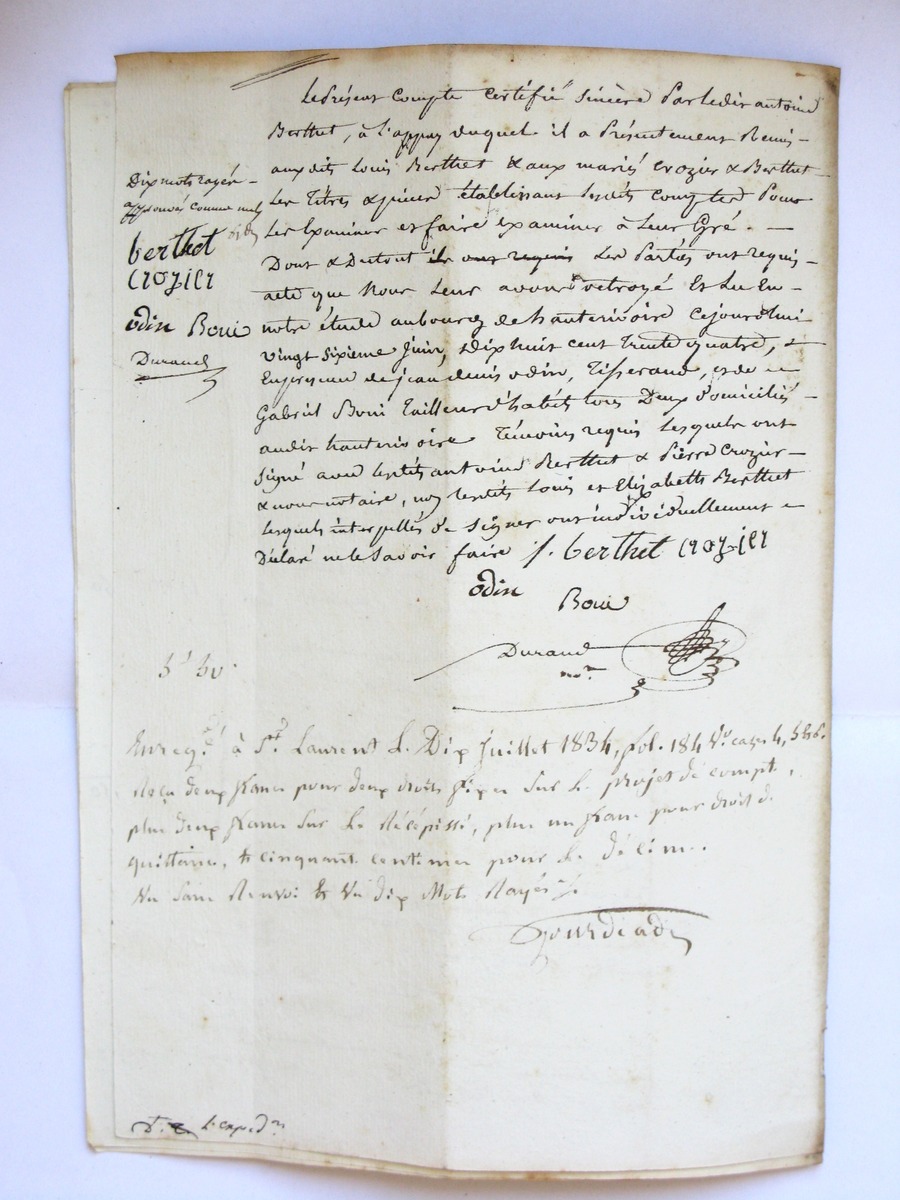 Le Présent Compte Certifié Sincère Par ledit antoine
Berthet, à l'appuy duquel il a Présentement Remis
auxdits Louis Berthet & aux mariés Crozier & Berthet
Les Titres & pièces établissant lesdits comptes Pour
Les Examiner et faire examiner à Leur Gré. —
Dont & Du tout ils ont requis Les Parties ont requis
acte que Nous Leur avons octroyé Et Lu En
notre étude au bourg de hauterivoire Cejourdhui
vingt Sixieme Juin, dix huit cent trente quatre, &
En presence de jean denis odin, Tisserand, et de
Gabriel Boui Tailleur d'habits tous Deux domiciliés
audit hauterivoire Témoins requis Lesquels ont
Signé avec lesdits antoine Berthet & Pierre Crozier
& nous notaire, non lesdits Louis et Elizabeth Berthet
Lesquels interpellés de Signer ont individuellement
Déclaré ne le Savoir faire
berthet crozier
odin Boui
Durand
nre.
Dix mots rayés
approuvés comme nuls
berthet
crozier
odin Boui
Durand
5f 50c
Enregé. à St. Laurent Le Dix Juillet 1834, fol. 184 Vo. cazes 4, 5 & 6.
Reçu deux francs pour deux droits fixes Sur Le projet de compte,
plus deux francs Sur Le Récépissé, plus un franc pour droit de
quittance, & cinquante centimes pour Le décime.
Vu Sans Renvoi & Vu dix Mots Rayés
L'expedon